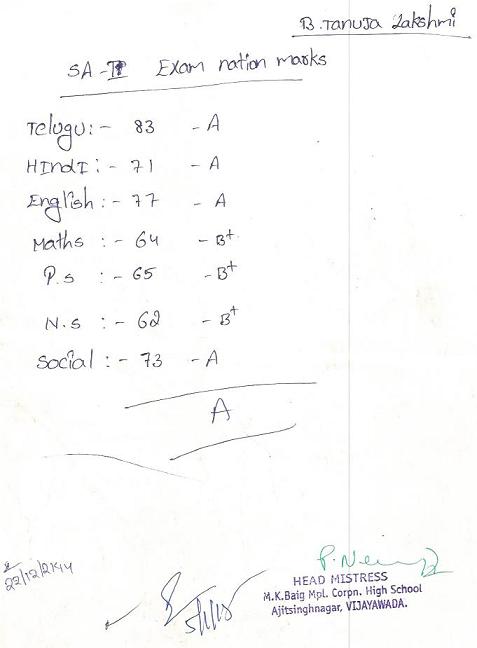 B. Tanuja Lakshmi
SA-II Exam nation marks
Telugu :- 83 - A
HIndI :- 71 - A
English :- 77 - A
Maths :- 64 - B+
P.s :- 65 - B+
N.s :- 62 - B+
Social :- 73 - A
A
5/1/15
HEAD MISTRESS
M.K.Baig Mpl. Corpn. High School
Ajitsinghnagar, VIJAYAWADA.